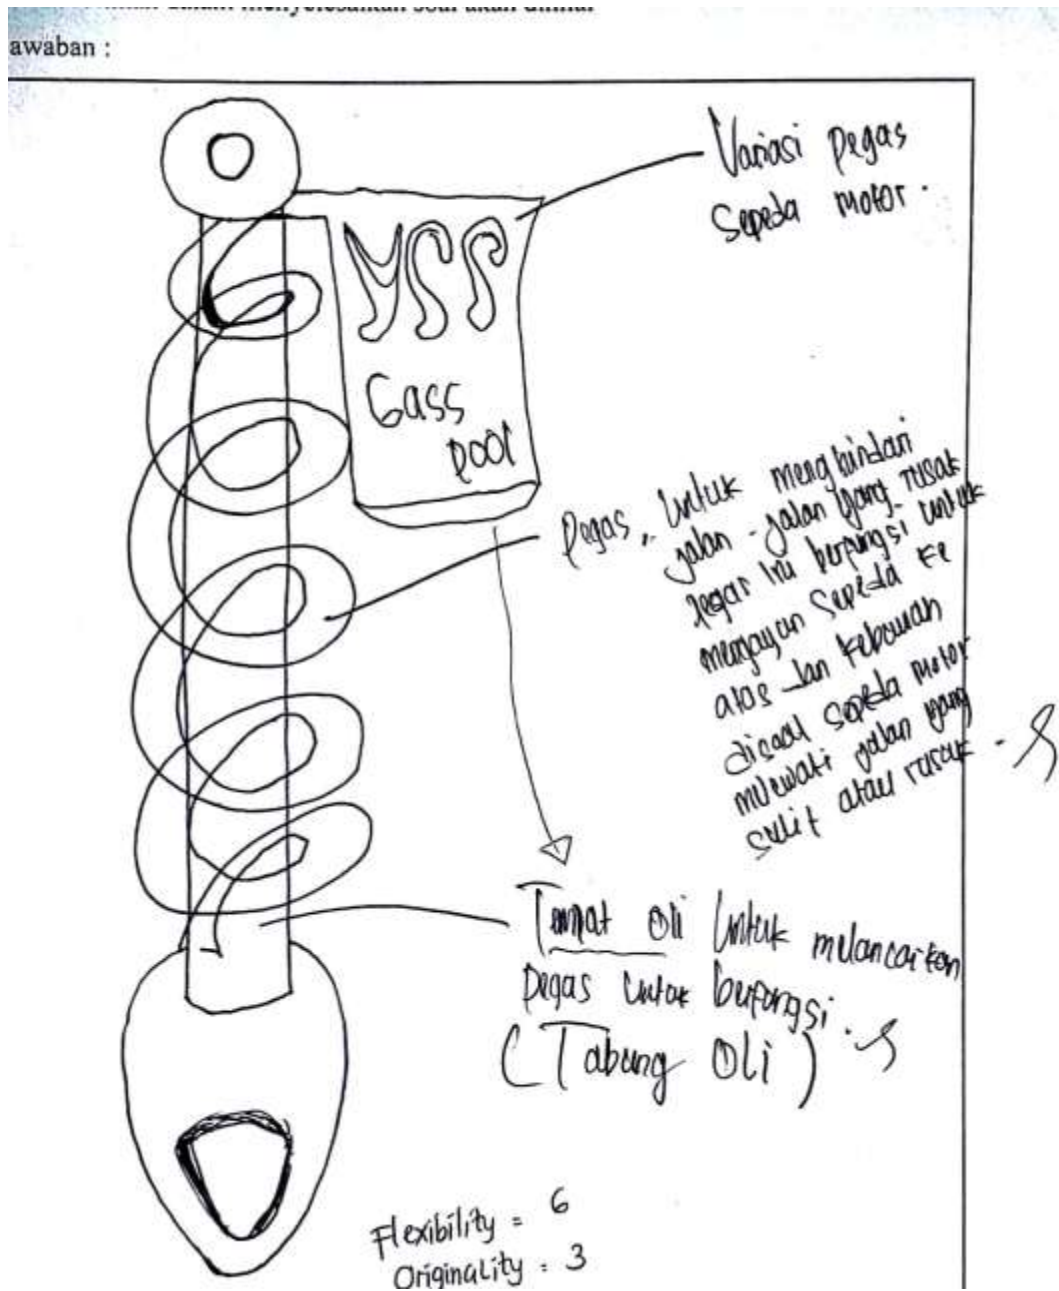 dalam menyelesaikan soal akan dinilai
awaban :
Variasi Pegas
Sepeda Motor.
YSS
Gass
pool
Pegas, Untuk menghindari
jalan - jalan yang rusak
pegas ini berfungsi untuk
mengayun sepeda ke
atas dan kebawah
disaat sepeda motor
melewati jalan yang
sulit atau rusak -
Tempat Oli Untuk melancarkan
Pegas untuk berfungsi.
(Tabung Oli)
Flexibility = 6
Originality = 3